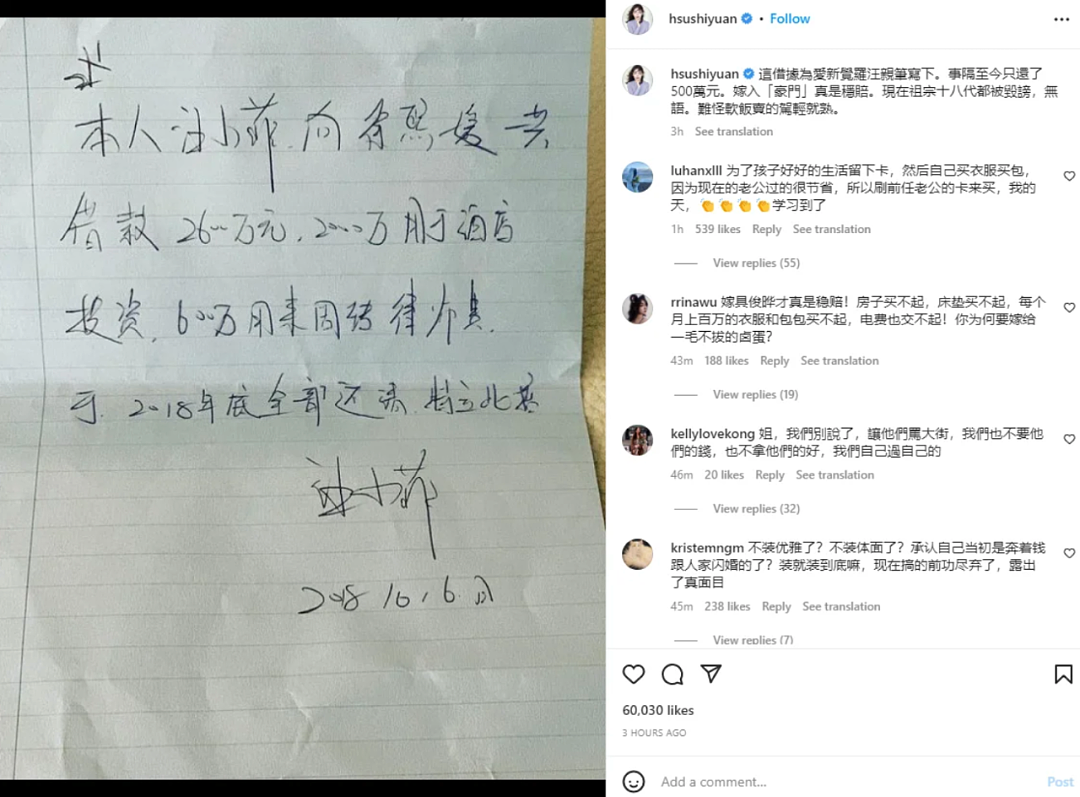 本人汪小菲.向徐熙媛共
借款2600万元,2000万用于酒店
投资,600万用来周转律师
于.2018年底全部还清.特立此
汪小菲
2018 10,6.日
hsushiyuan • Follow
hsushiyuan 這借據為愛新覺羅汪親筆寫下。事隔至今只還了
500萬元。嫁入「豪門」真是穩賠。現在祖宗十八代都被毀謗，無
語。難怪軟飯賣的駕輕就熟。
3h See translation
luhanxlll 为了孩子好好的生活留下卡，然后自己买衣服买包，
因为现在的老公过的很节省，所以刷前任老公的卡来买，我的
天，👏👏👏👏学习到了
1h 539 likes Reply See translation
View replies (55)
rrinawu 嫁具俊晔才真是稳赔！房子买不起，床垫买不起，每个
月上百万的衣服和包包买不起，电费也交不起！你为何要嫁给
一毛不拔的卤蛋？
43m 188 likes Reply See translation
View replies (19)
kellylovekong 姐，我們別說了，讓他們罵大街，我們也不要他
們的錢，也不拿他們的好，我們自己過自己的
46m 20 likes Reply See translation
View replies (32)
kristemngm 不装优雅了？不装体面了？承认自己当初是奔着钱
跟人家闪婚的了？装就装到底嘛，现在搞的前功尽弃了，露出
了真面目
45m 238 likes Reply See translation
View replies (7)
60,030 likes
3 HOURS AGO
Add a comment... Post